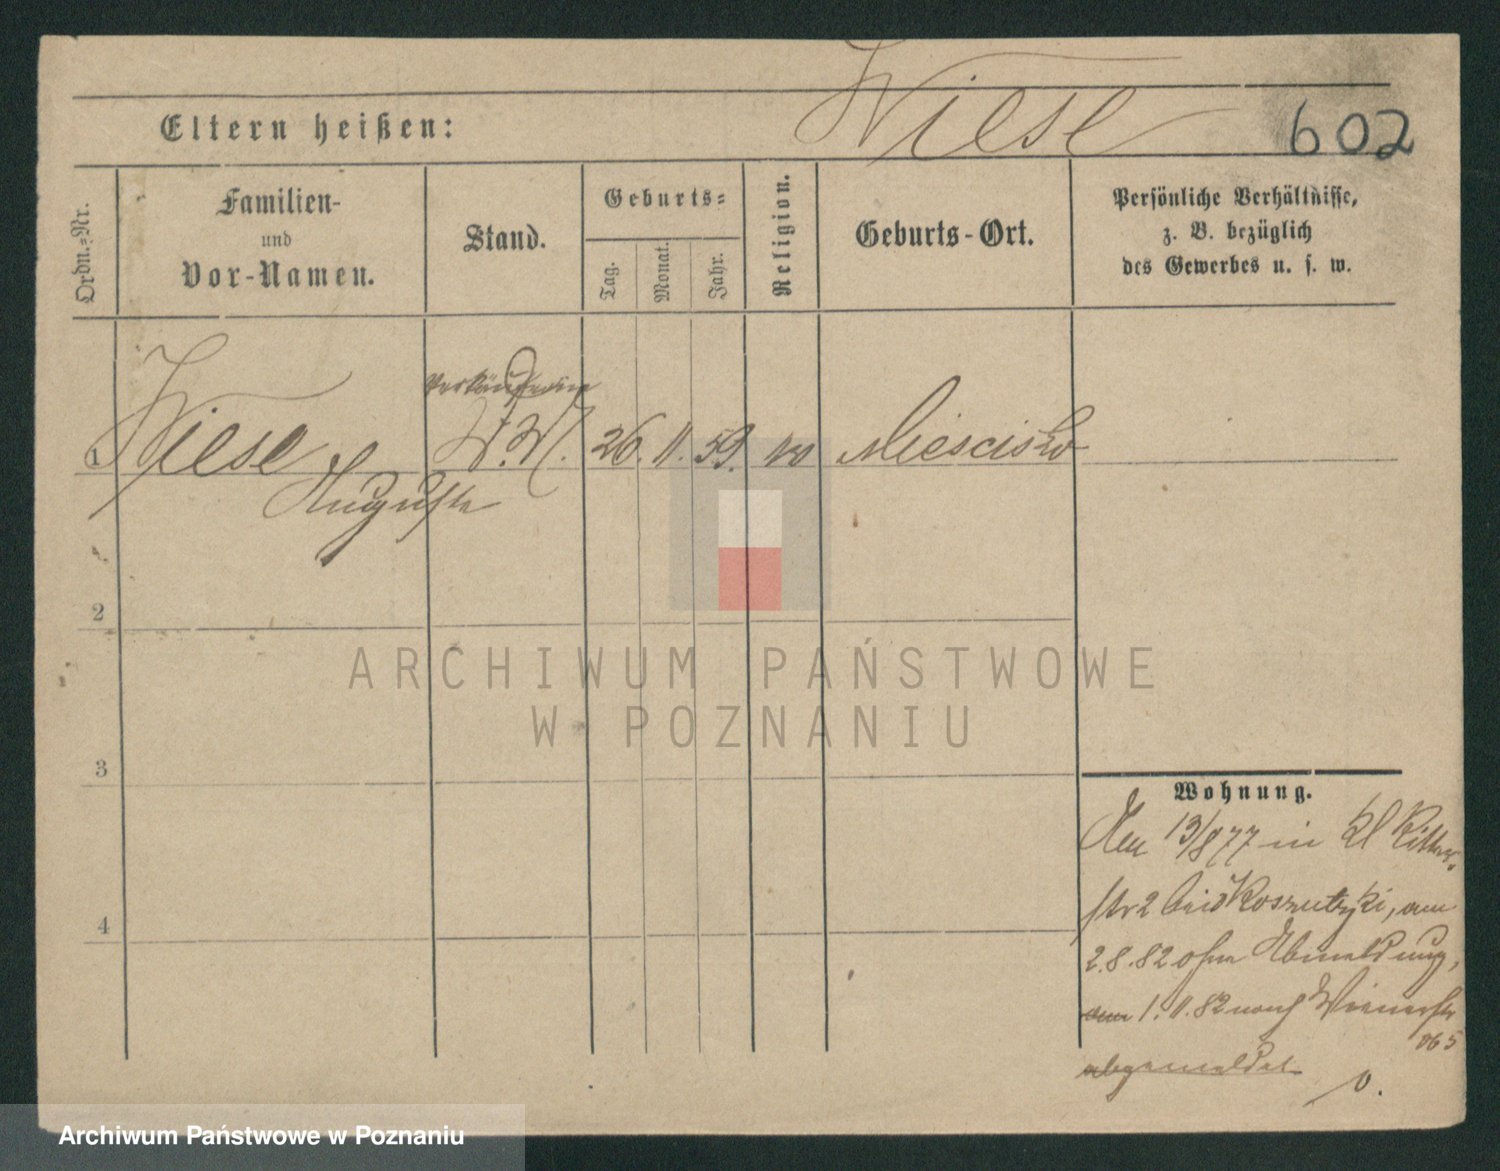 Wiese
602
Eltern heißen:
Ordn.=Nr.
Familien-
und
Vor-Namen.
Stand.
Geburts=
Tag.
Monat.
Jahr.
Religion.
Geburts-Ort.
Persönliche Verhältnisse,
z. B. bezüglich
des Gewerbes u. s. w.
Verkäuferin
1 Wiese W. 26. 11. 59. Miescisko
Auguste
2
3
4
Wohnung.
Den 13/8 77 in kl Ritter-
str 2 bei Koszutzki, am
2.8.82 ohne Abmeldung,
am 1.11.82 nach Wienerstr
5
abgemeldet
ARCHIWUM PAŃSTWOWE
W POZNANIU
Archiwum Państwowe w Poznaniu